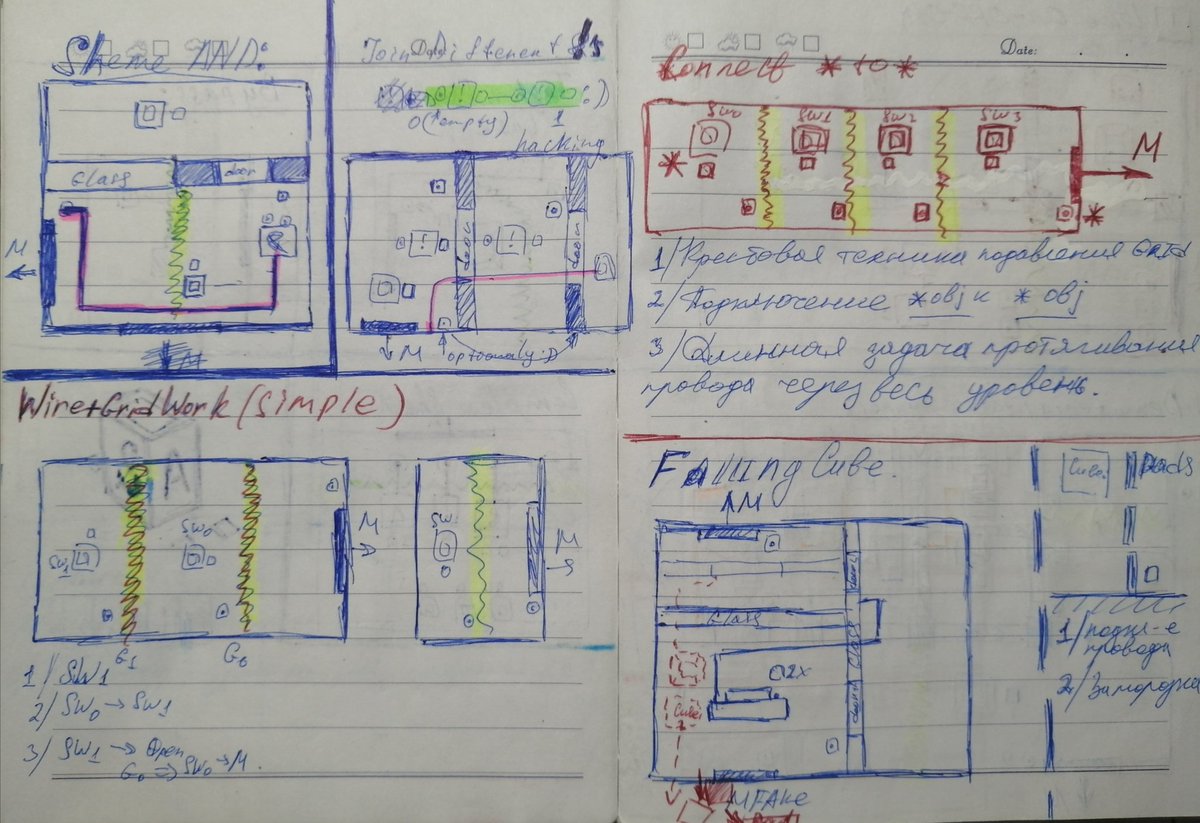 Sheme AND:
Glass
door
M
M
Date:
0(empty)
1
hacking
door
door
M
optionaly:D
Wire+GridWork (Simple)
SW1
SW0
M
G1
G0
SW
M
1/ SW1
2/ SW0 → SW1
3/ SW1 → Open
G0 → SW0 → M.
Date:
Connect * to *
SW0
SW1
SW2
SW3
*
M
*
1/ Крестовая техника подавления GRID
2/ Подключение *obj к *obj
3/ Длинная задача протягивания
провода через весь уровень.
Falling Cube.
M
door
Glass
Glass
door
Cube
M FAKe
Cube
Pads
1/ подкл-е
провода
2/ Заморозка